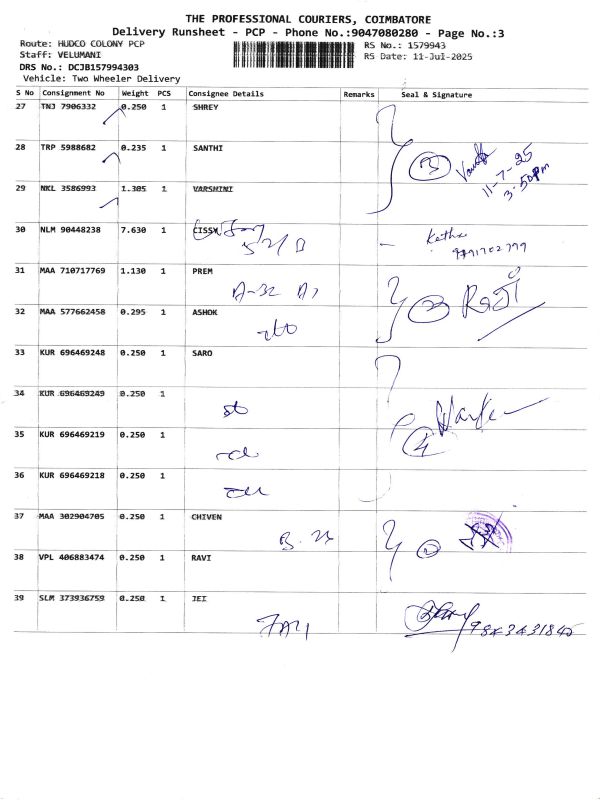 THE PROFESSIONAL COURIERS, COIMBATORE
Delivery Runsheet - PCP - Phone No.:9047080280 - Page No.:3
Route: HUDCO COLONY PCP
RS No.: 1579943
Staff: VELUMANI
RS Date: 11-Jul-2025
DRS No.: DCJB157994303
Vehicle: Two Wheeler Delivery
S No Consignment No Weight PCS Consignee Details Remarks Seal & Signature
27 TNJ 7906332 0.250 1 SHREY
28 TRP 5988682 0.235 1 SANTHI
3
11-7-25
3.50pm
29 NKL 3586993 1.305 1 VARSHINI
30 NLM 90448238 7.630 1 CISSY
31 MAA 710717769 1.130 1 PREM
32 MAA 577662458 0.295 1 ASHOK
2
33 KUR 696469248 0.250 1 SARO
34 KUR 696469249 0.250 1
35 KUR 696469219 0.250 1
4
36 KUR 696469218 0.250 1
37 MAA 302904705 0.250 1 CHIVEN
2
38 VPL 406883474 0.250 1 RAVI
39 SLM 373936759 0.250 1 JEI